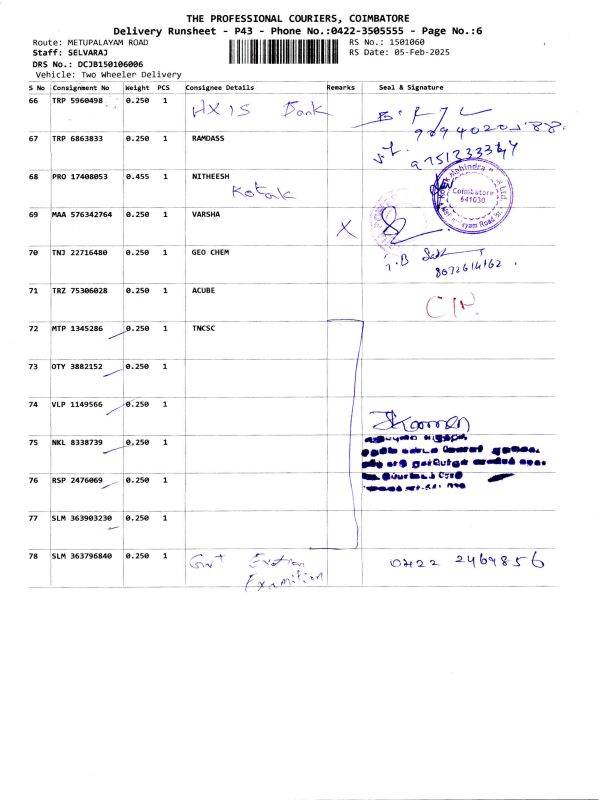 THE PROFESSIONAL COURIERS, COIMBATORE
Delivery Runsheet - P43 - Phone No.:0422-3505555 - Page No.:6
Route: METUPALAYAM ROAD RS No.: 1501060
Staff: SELVARAJ RS Date: 05-Feb-2025
DRS No.: DCJB150106006
Vehicle: Two Wheeler Delivery
S No Consignment No Weight PCS Consignee Details Remarks Seal & Signature
66 TRP 5960498 0.250 1 Bank
67 TRP 6863833 0.250 1 RAMDASS 9751333347
68 PRO 17408053 0.455 1 NITHEESH
Kotak
Mahindra
Coimbatore
641030
69 MAA 576342764 0.250 1 VARSHA X
70 TNJ 22716480 0.250 1 GEO CHEM
8072614162
71 TRZ 75306028 0.250 1 ACUBE
72 MTP 1345286 0.250 1 TNCSC
73 OTY 3882152 0.250 1
74 VLP 1149566 0.250 1
75 NKL 8338739 0.250 1
76 RSP 2476069 0.250 1
77 SLM 363903230 0.250 1
78 SLM 363796840 0.250 1 Govt 0422 2469856